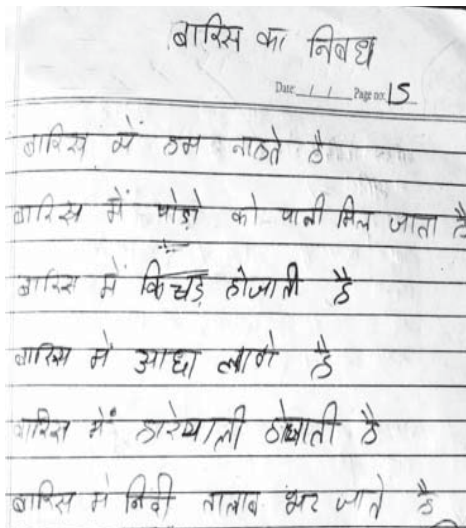 बारिस का निबध
Date: / / Page no: 15
बारिस में हम नाहते है
बारिस में पोड़ो को पानी मिल जाता है
बारिस में किचड़े होजाती है
बारिस में आधा लागे है
बारिस में हारेयाली होजाती है
बारिस में निदी तालाब भर जाते है